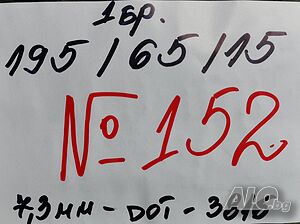 1 бр.
195/65/15
№ 152
7,3 мм - DOT -
ALO.bg